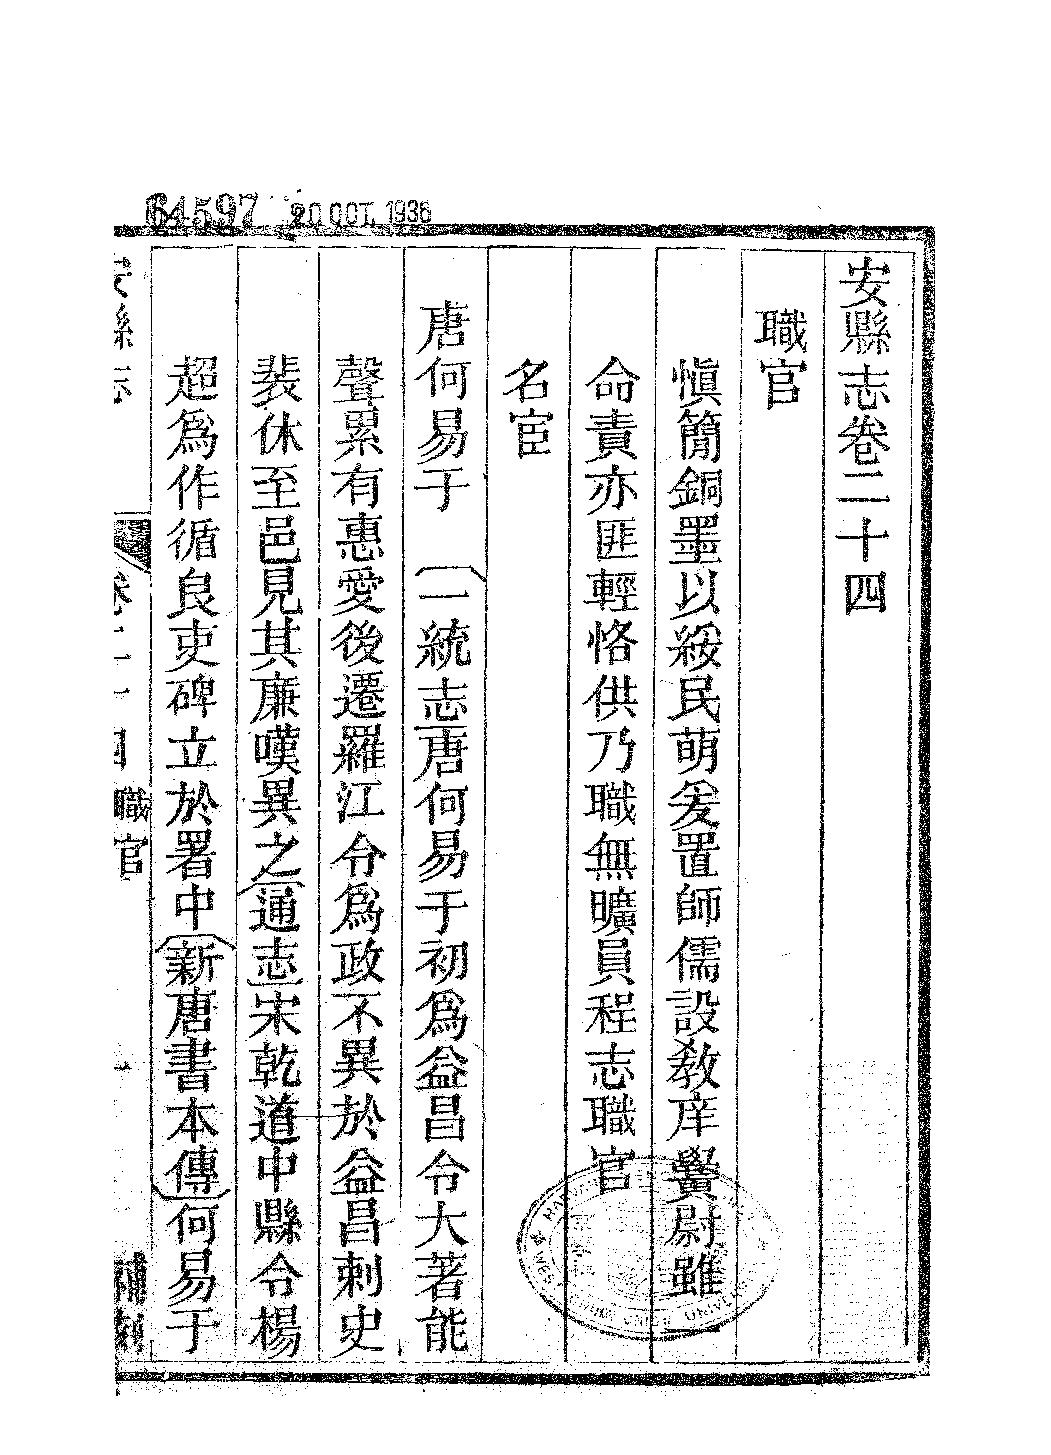 64597 20 OCT. 1936
安縣志卷二十四
職官
愼簡銅墨以綏民萌爰置師儒設敎庠黌尉雖一
命責亦匪輕恪供乃職無曠員程志職官
名宦
唐何易于 一統志唐何易于初爲益昌令大著能
聲累有惠愛後遷羅江令爲政不異於益昌刺史
裴休至邑見其廉嘆異之通志宋乾道中縣令楊
超爲作循良吏碑立於署中新唐書本傳何易于
安縣志 卷二十四 職官